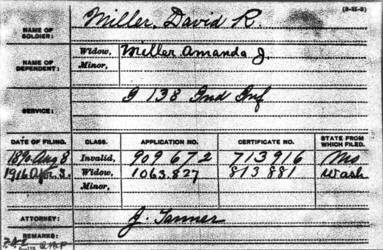 (3-113)
NAME OF SOLDIER: Miller, David R.
NAME OF DEPENDENT: Widow, Miller Amanda J.
Minor,
SERVICE: G 138 Ind Inf
DATE OF FILING. CLASS. APPLICATION NO. CERTIFICATE NO. STATE FROM WHICH FILED.
1890 Aug 8 Invalid, 909 672 713916 Mo
1916 Apr. 3. Widow, 1063.827 813 881 Wash
Minor,
ATTORNEY: J. Tanner
REMARKS: